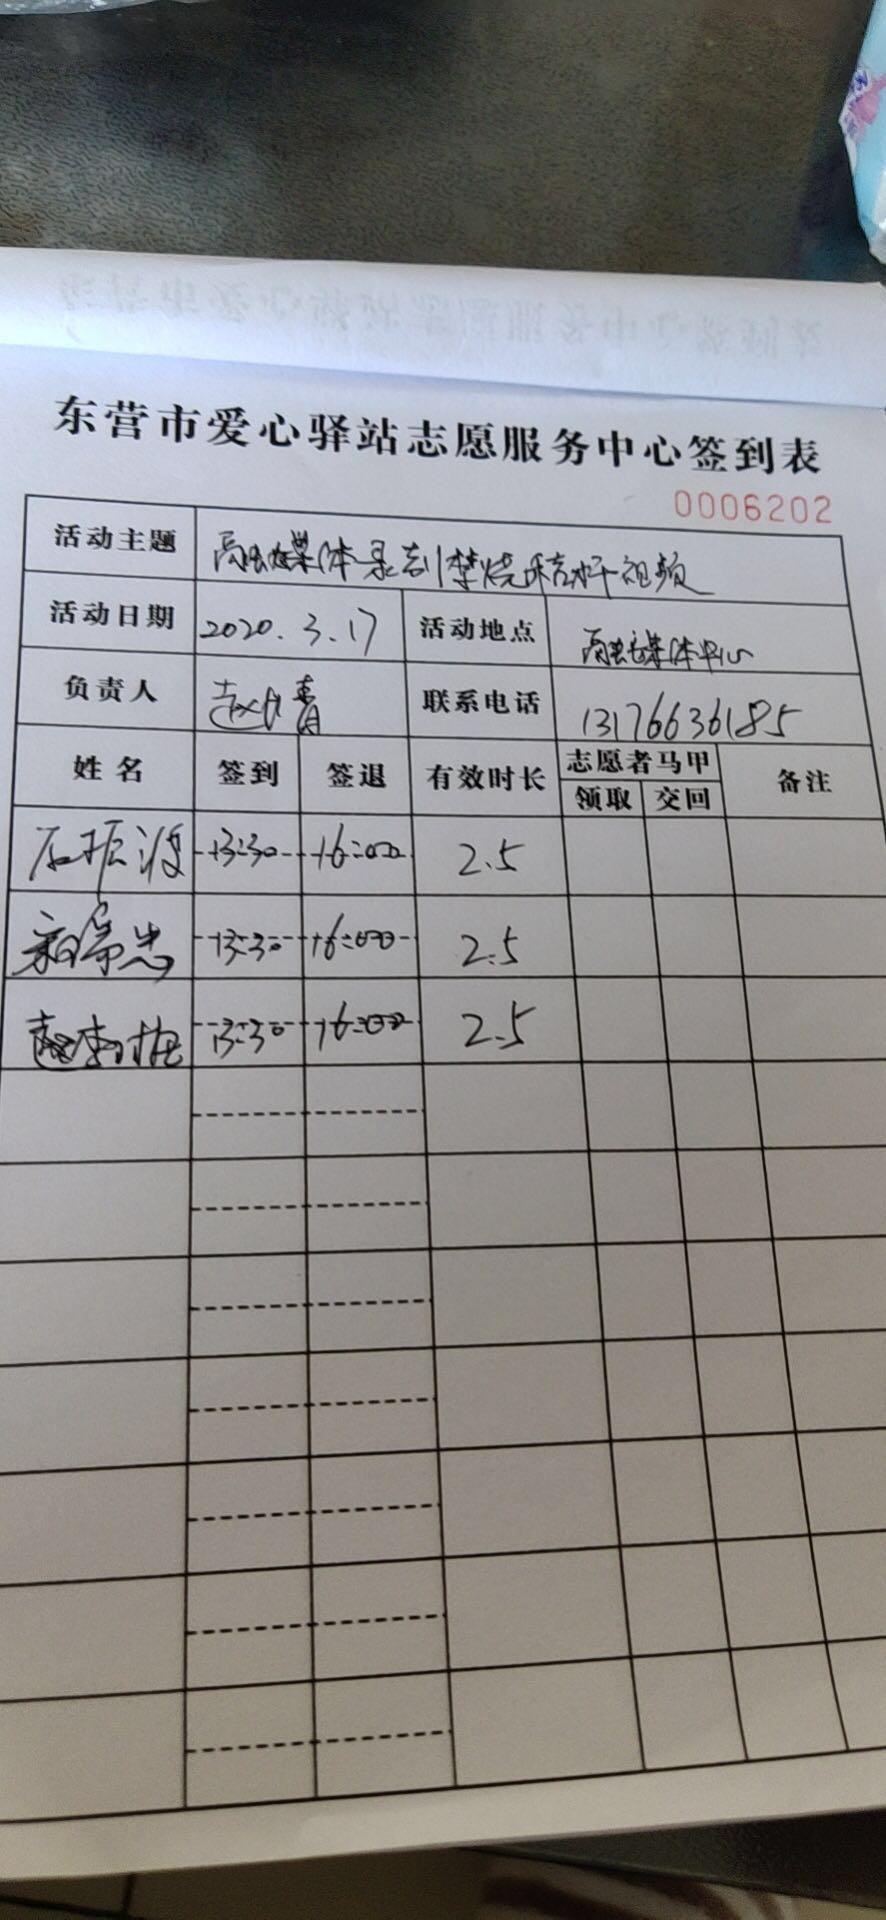 东营市爱心驿站志愿服务中心签到表
0006202
活动主题 融媒体录制禁烧秸秆视频
活动日期 2020.3.17 活动地点 融媒体中心
负责人 联系电话 13176636185
姓名 签到 签退 有效时长 志愿者马甲 备注
领取 交回
石振波 13:30 16:00 2.5
13:30 16:00 2.5
13:30 16:00 2.5